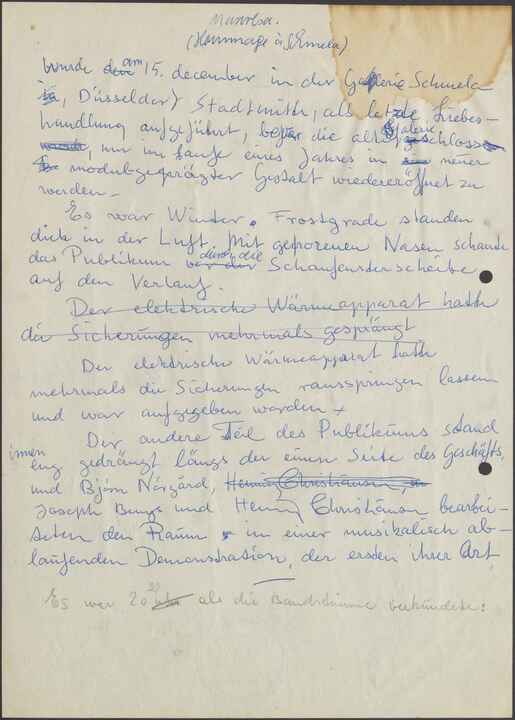 Manresa.
(Hommage à Schmela)
Wurde den am 15. december in der Galerie Schmela
in, Düsseldorf Stadtmitte, als letzte Liebes-
handlung aufgeführt, bevor die alte Galerie geschlossen
wurde, um im Laufe eines Jahres in neuer
modulgeprägter Gestalt wiedereröffnet zu
werden –
Es war Winter. Frostgrade standen
dick in der Luft. Mit gefrorenen Nasen schaute
das Publikum durch die Schaufensterscheibe
auf den Verlauf.
Der elektrische Wärmeapparat hatte
die Sicherungen mehrmals gesprängt
Der elektrische Wärmeapparat hatte
mehrmals die Sicherungen rausspringen lassen
und war aufgegeben worden
Der andere Teil des Publikums stand
innen
eng gedrängt längs der einen Seite des Geschäfts,
und Björn Nörgård, Henning Christiansen, u
Joseph Beuys und Henning Christiansen bearbei-
teten den Raum in einer musikalisch ab-
laufenden Demonstration, der ersten ihrer Art
Es war 20 30 Uhr als die Bandstimme verkündete: